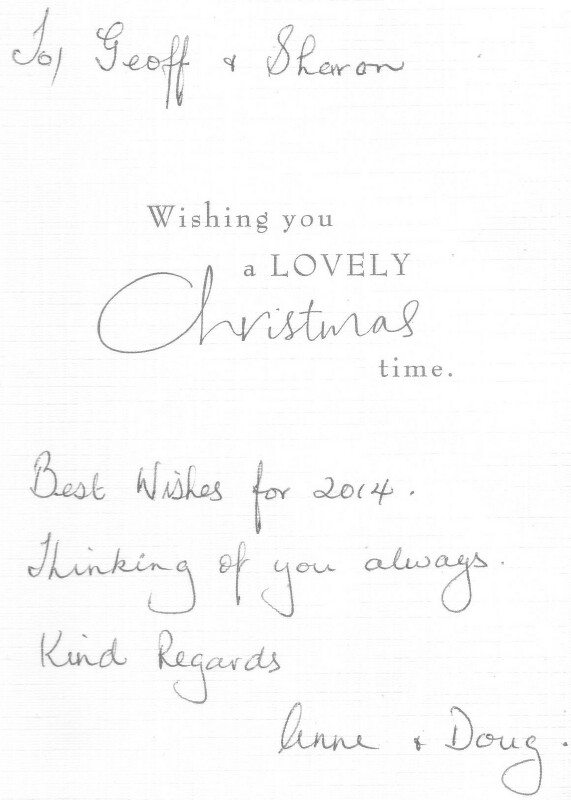 To/ Geoff & Sharon
Wishing you
a LOVELY
Christmas
time.
Best Wishes for 2014.
Thinking of you always.
Kind Regards
Anne & Doug.